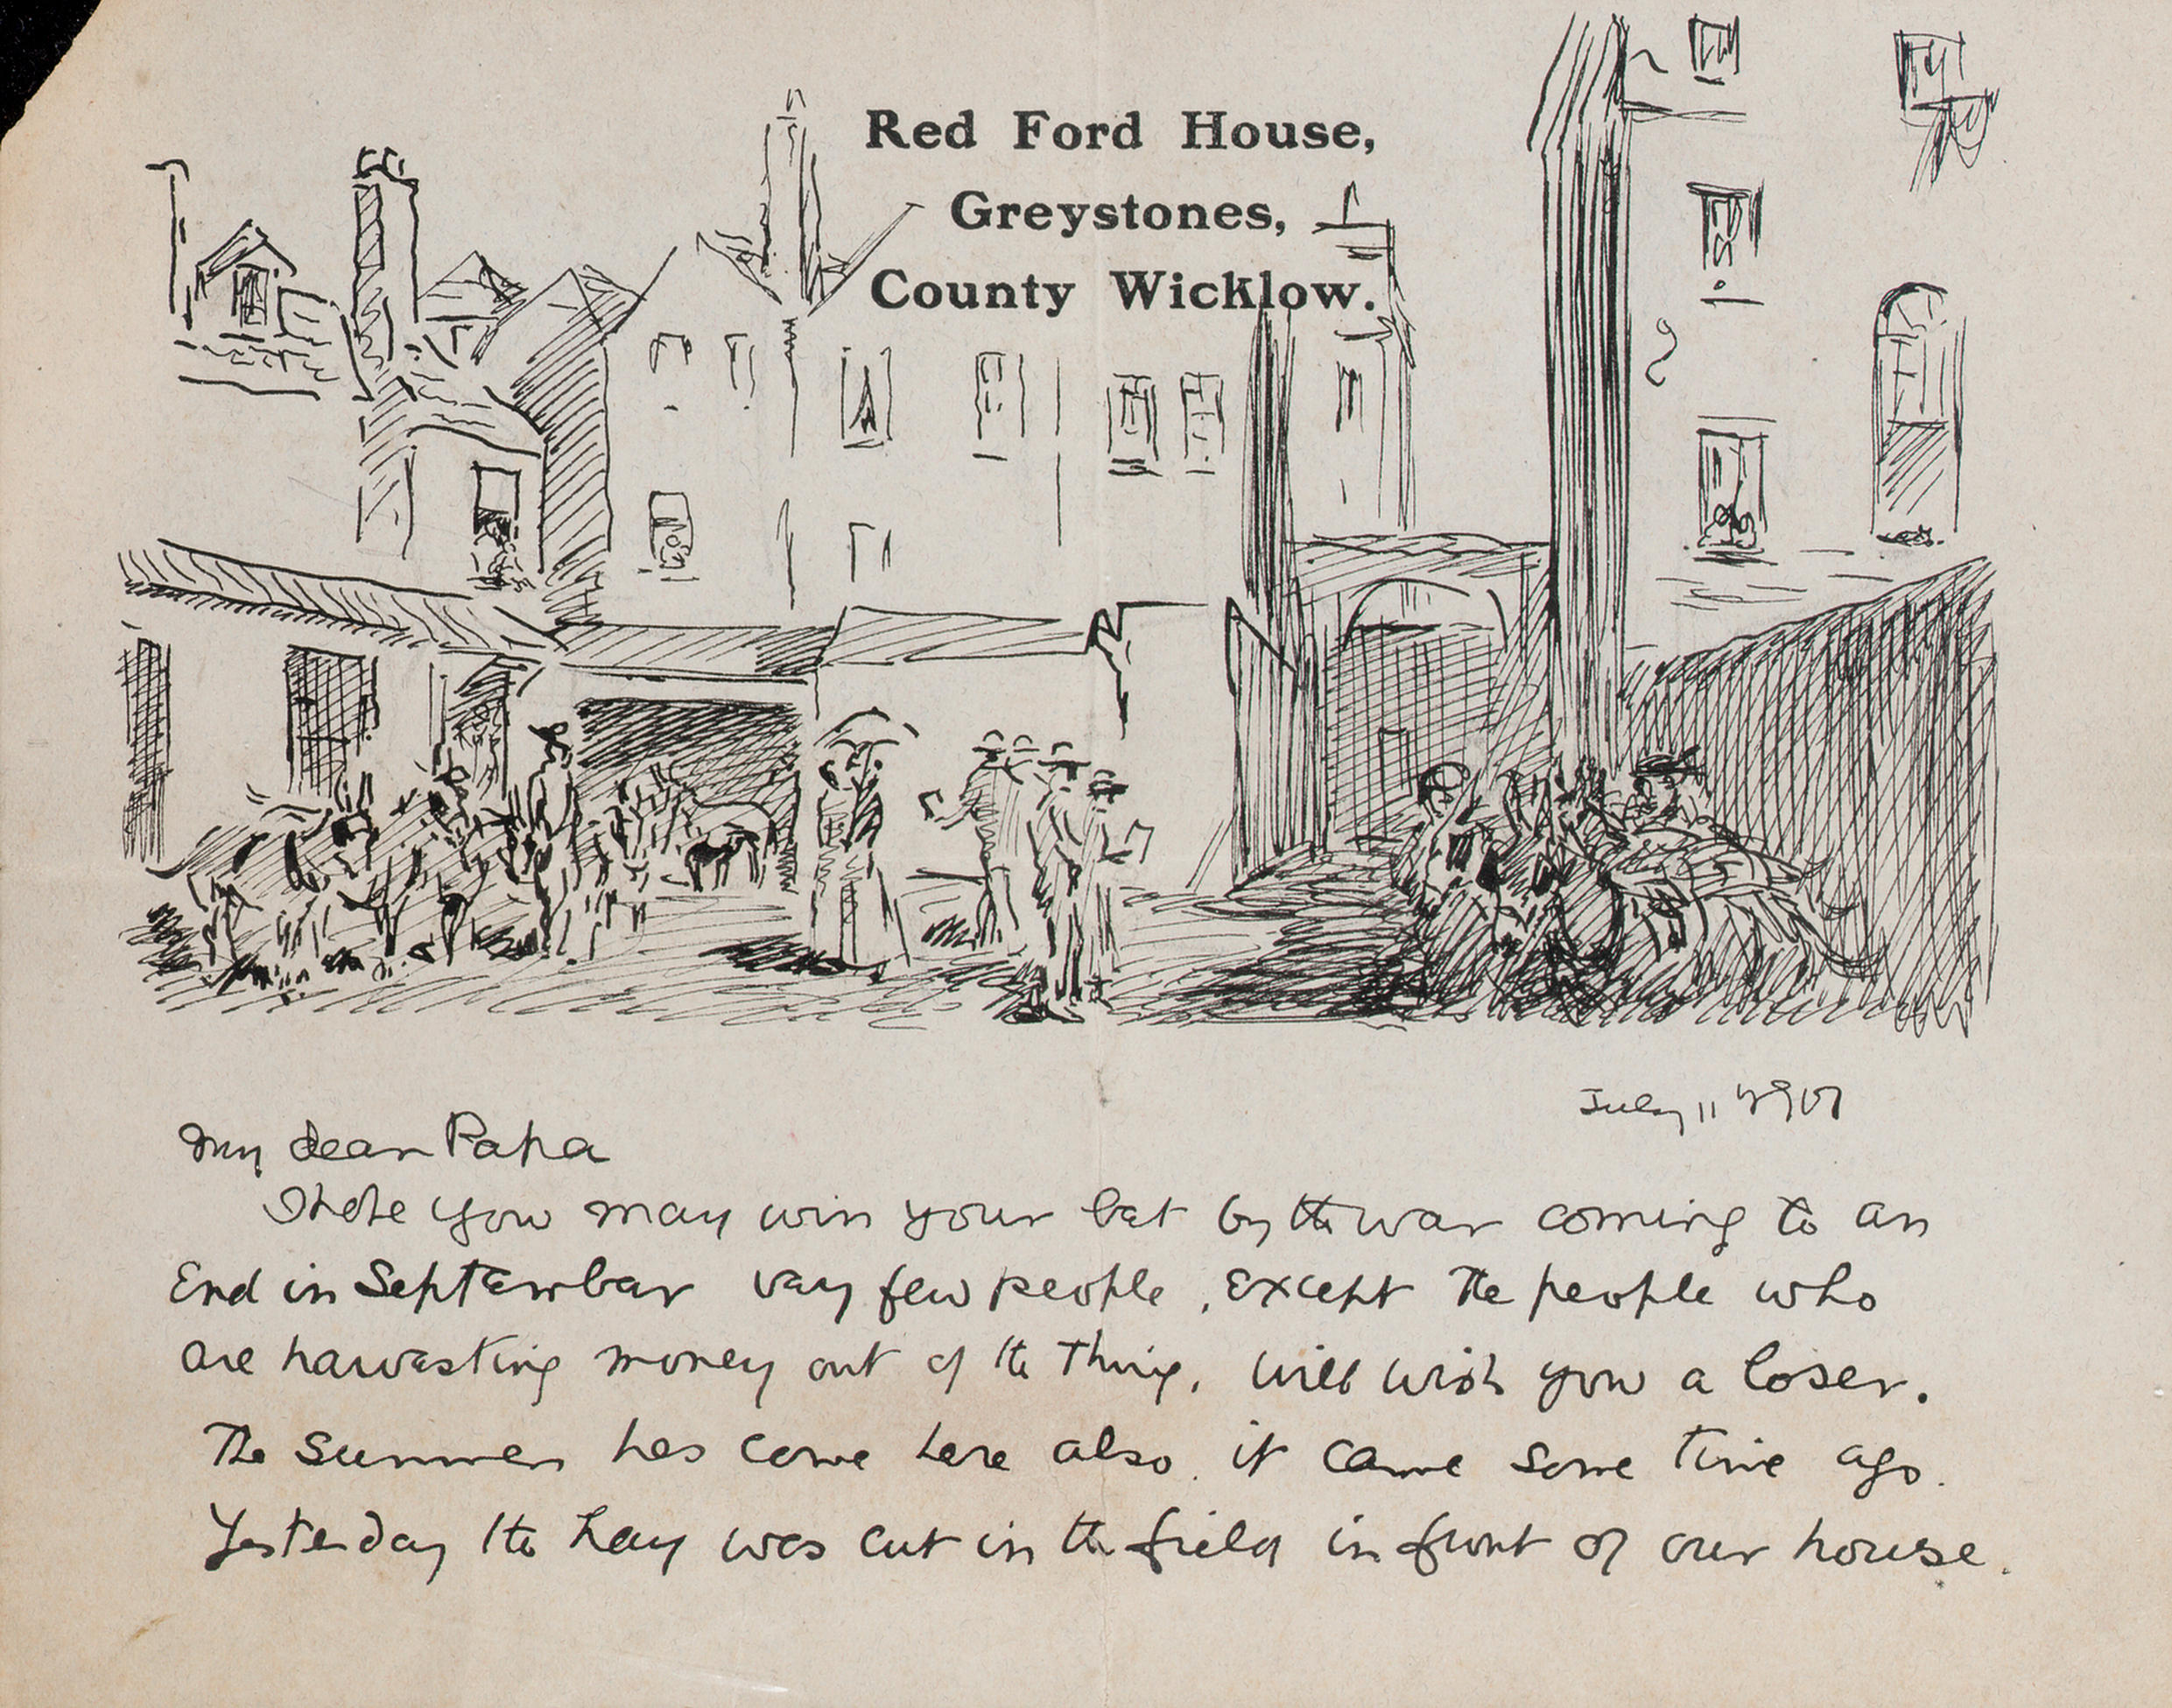 Red Ford House,
Greystones,
County Wicklow.
July 11 1917
My dear Papa
I hope you may win your bet by the war coming to an
End in September very few people, except the people who
are harvesting money out of the thing, will wish you a loser.
The summer has come here also. it came some time ago.
Yesterday the hay was cut in the field in front of our house.